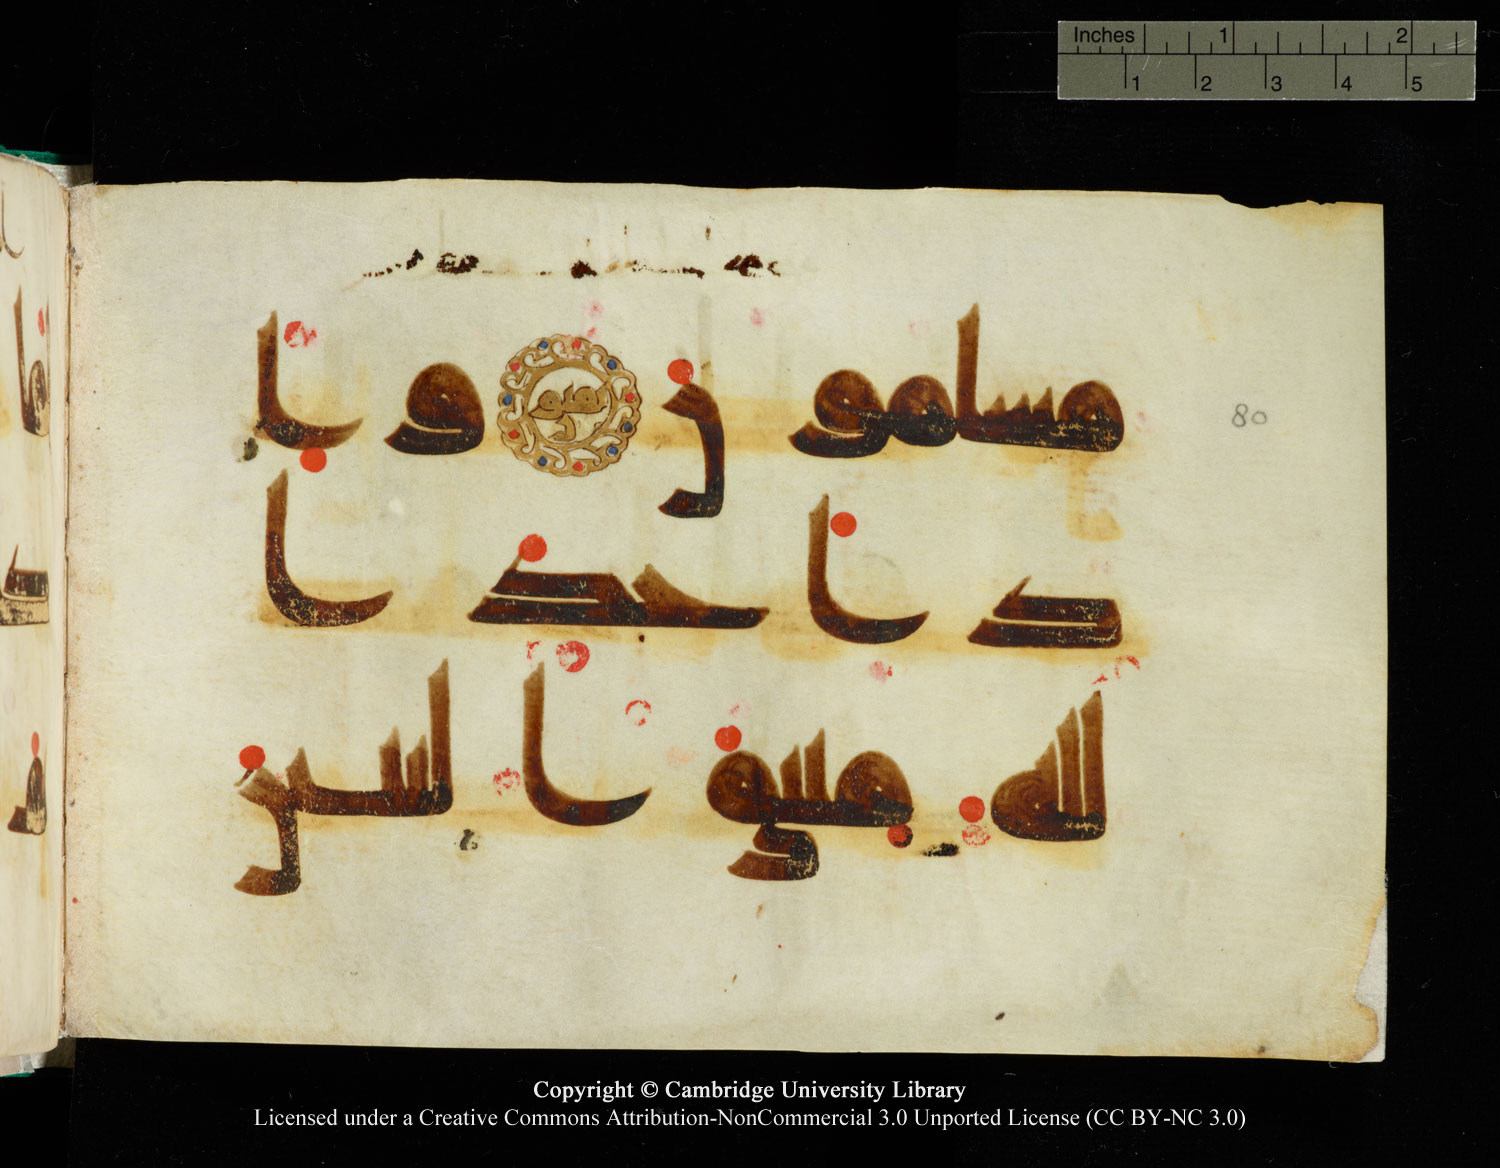 Inches 1 2
1 2 3 4 5
مسلمون وا
80
ذ اخذ ا
لله ميثق النبين
Copyright © Cambridge University Library
Licensed under a Creative Commons Attribution-NonCommercial 3.0 Unported License (CC BY-NC 3.0)